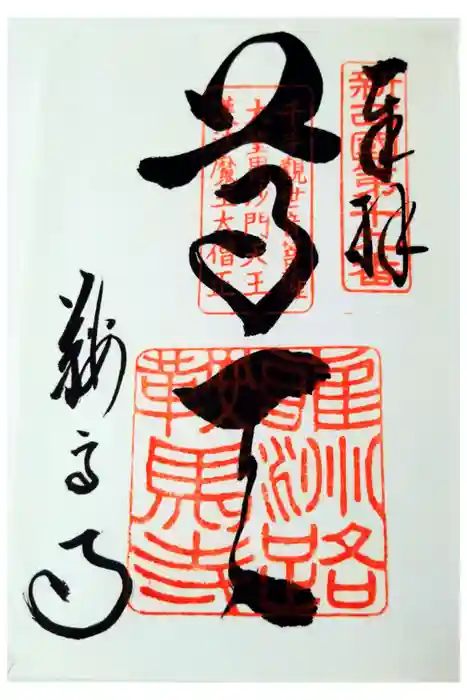 奉拝
新西國第十九番
尊天
千手觀世音菩薩
大聖毘沙門天王
護法魔王大僧正
雍洲路
鞍馬寺
鞍馬寺